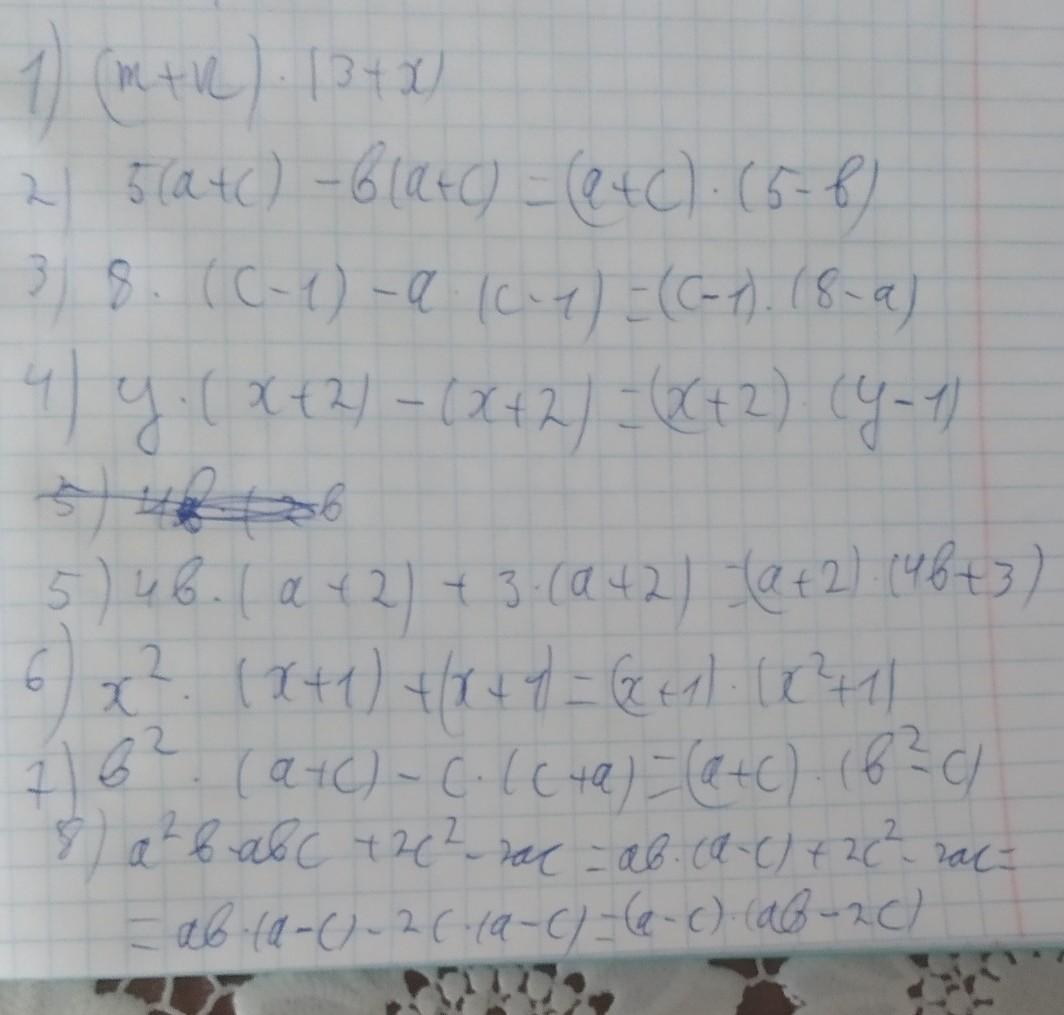 1) (m+n)·(3+x)
2) 5(a+c)-b(a+c)=(a+c)·(5-b)
3) 8·(c-1)-a·(c-1)=(c-1)·(8-a)
4) y·(x+2)-(x+2)=(x+2)·(y-1)
5) 4b·(a+2)+3·(a+2)=(a+2)·(4b+3)
6) x²·(x+1)+(x+1)=(x+1)·(x²+1)
7) b²·(a+c)-c·(c+a)=(a+c)·(b²-c)
8) a²b-abc+2c²-2ac=ab·(a-c)+2c²-2ac=
=ab·(a-c)-2c·(a-c)=(a-c)·(ab-2c)